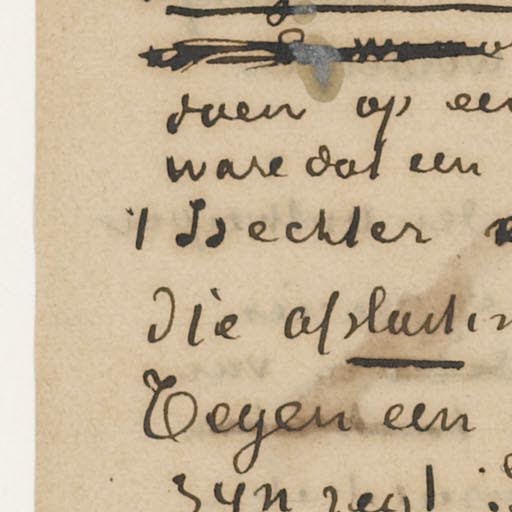 doen op een
ware dat een
't Is echter
Die afsluitin
Tegen een
zyn zegt